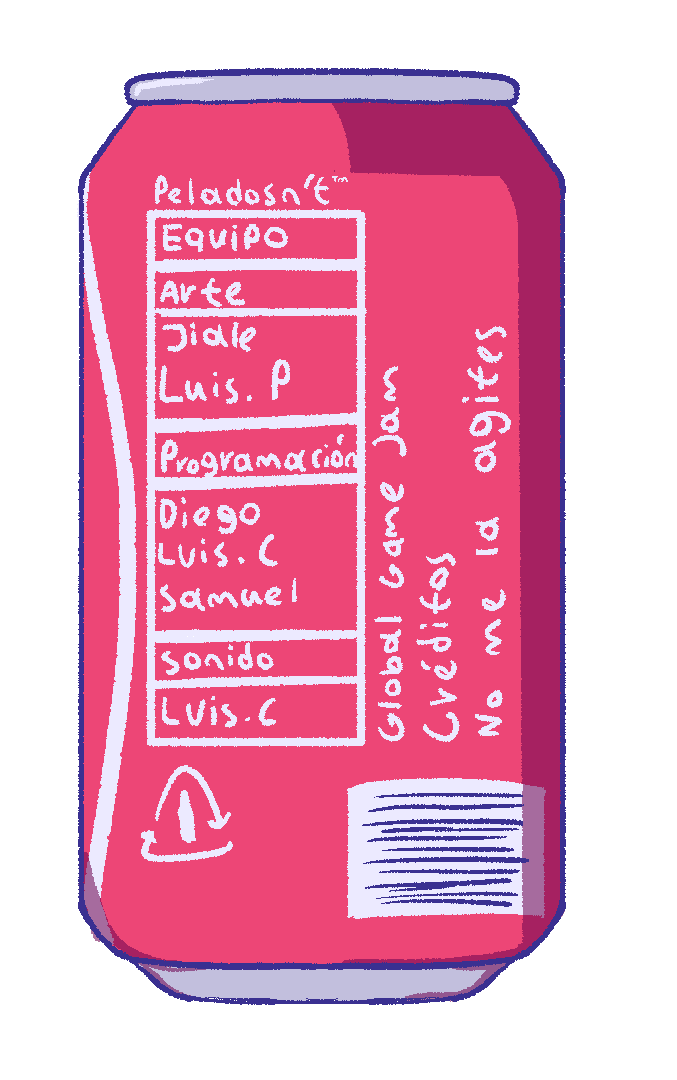 Peladosn't™
Equipo
Arte
Jiale
Luis. P
Programación
Diego
Luis. C
Samuel
Sonido
Luis. C
Global Game Jam
Créditos
No me la agites
1